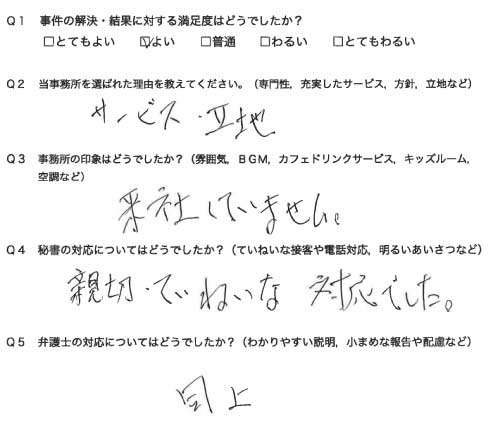 Q1 事件の解決・結果に対する満足度はどうでしたか？
□とてもよい ☑よい □普通 □わるい □とてもわるい
Q2 当事務所を選ばれた理由を教えてください。（専門性，充実したサービス，方針，立地など）
サービス・立地
Q3 事務所の印象はどうでしたか？（雰囲気，BGM，カフェドリンクサービス，キッズルーム，
空調など）
来社していません。
Q4 秘書の対応についてはどうでしたか？（ていねいな接客や電話対応，明るいあいさつなど）
親切・ていねいな 対応でした。
Q5 弁護士の対応についてはどうでしたか？（わかりやすい説明，小まめな報告や配慮など）
同上